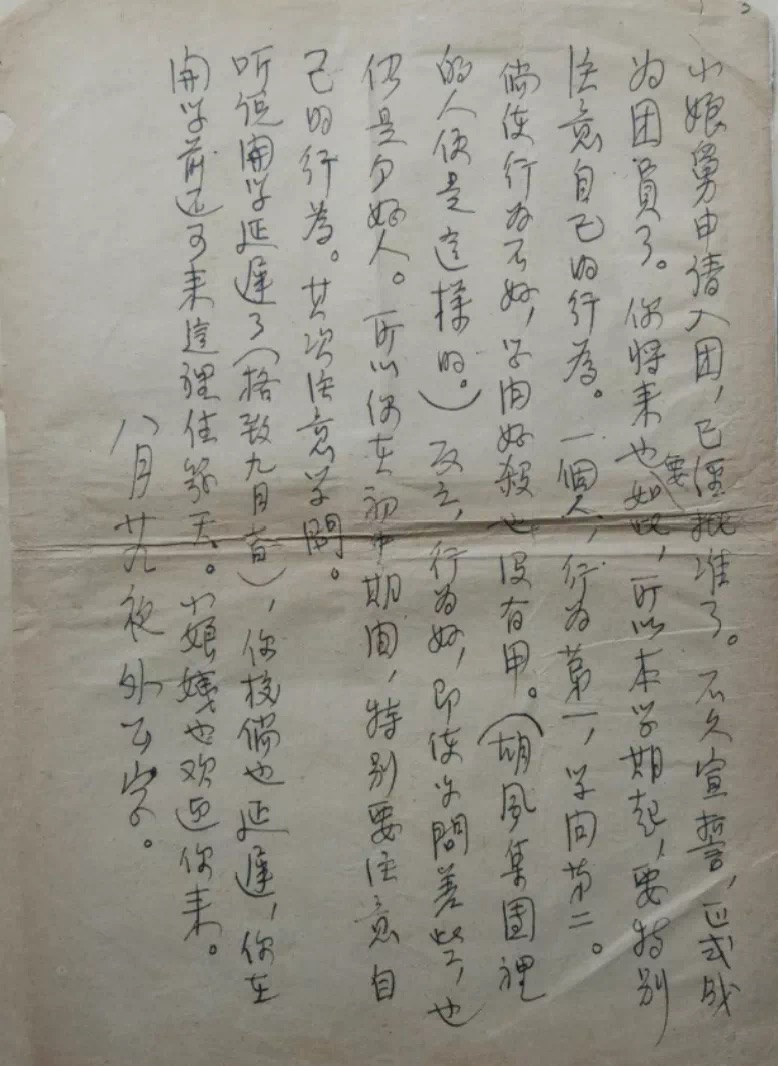 小娘舅申请入团，已经批准了。不久宣誓，正式成
为团員了。你将来也要如此，所以本学期起，要特别
注意自己的行為。一個人，行为第一，学问第二。
倘使行为不好，学问好殺也没有用。（胡风集团裡
的人便是这様的。）反之，行为好，即使学問差些，也
仍是个好人。所以你在初中期间，特别要注意自
己的行為。其次注意学問。
听说開学延遲了（格致九月  ），你校倘也延遲，你在
開学前还可来这裡住幾天。小娘姨也欢迎你来。
八月廿九夜 外公字。